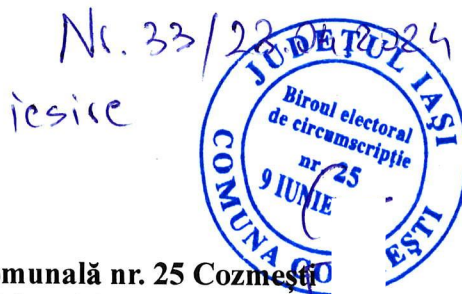 Nr. 33/23.04.2024
iesire
JUDEŢUL IAŞI
Biroul electoral
de circumscripţie
nr. 25
9 IUNIE
COMUNA
munală nr. 25 Cozmeşti